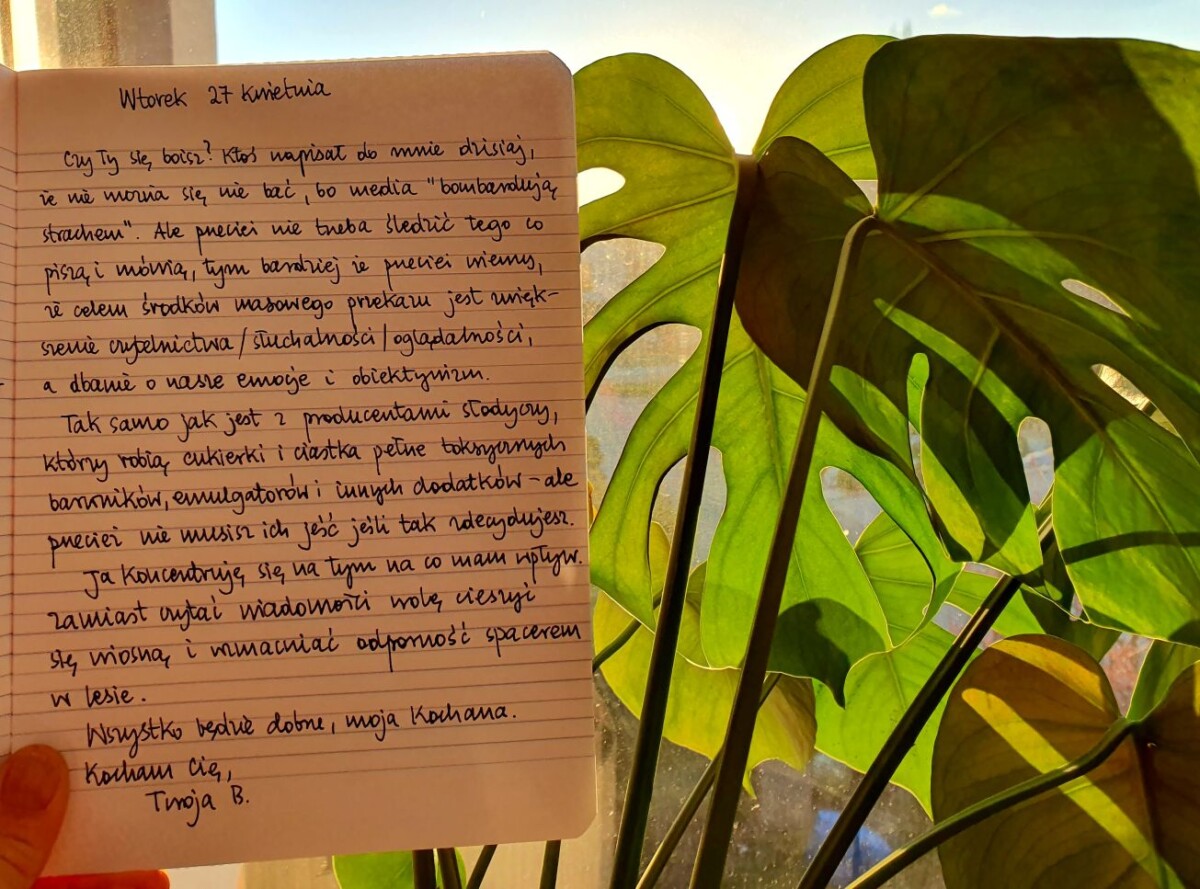 Wtorek 27 kwietnia
Czy Ty się boisz? Ktoś napisał do mnie dzisiaj,
że nie można się nie bać, bo media "bombardują
strachem". Ale przecież nie trzeba śledzić tego co
piszą i mówią, tym bardziej że przecież wiemy,
że celem środków masowego przekazu jest zwięk-
szenie czytelnictwa/słuchalności/oglądalności,
a dbanie o nasze emocje i obiektywizm.
Tak samo jak jest z producentami słodyczy,
którzy robią cukierki i ciastka pełne toksycznych
barwników, emulgatorów i innych dodatków - ale
przecież nie musisz ich jeść jeśli tak zdecydujesz.
Ja koncentruję się na tym na co mam wpływ.
zamiast czytać wiadomości wolę cieszyć
się wiosną i wzmacniać odporność spacerem
w lesie.
Wszystko będzie dobrze, moja Kochana.
Kocham Cię,
Twoja B.